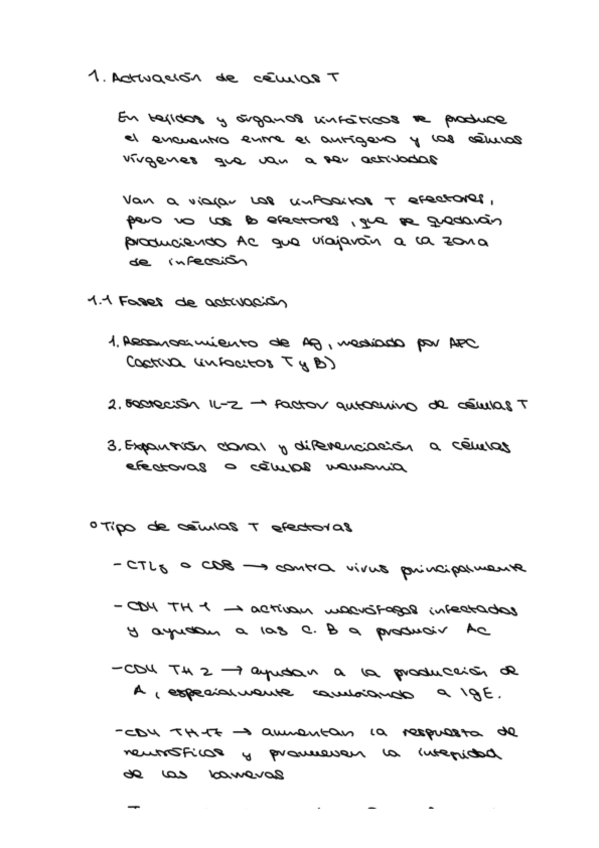 1. Activación de células T
En tejidos y órganos linfáticos se produce
el encuentro entre el antígeno y las células
vírgenes que van a ser activadas
Van a viajar los linfocitos T efectores,
pero no los B efectores, que se quedarán
produciendo Ac que viajarán a la zona
de infección
1.1 Fases de activación
1. Reconocimiento de Ag, mediado por APC
(activa linfocitos T y B)
2. Secreción IL-2 → factor autocrino de células T
3. Expansión clonal y diferenciación a células
efectoras o células memoria
° Tipo de células T efectoras
- CTLs o CD8 → contra virus principalmente
- CD4 TH-1 → activan macrófagos infectados
y ayudan a las C. B a producir AC
- CD4 TH 2 → ayudan a la producción de
A, especialmente cambiando a IgE.
- CD4 TH-17 → aumentan la respuesta de
neutrófilos y promueven la integridad
de las barreras